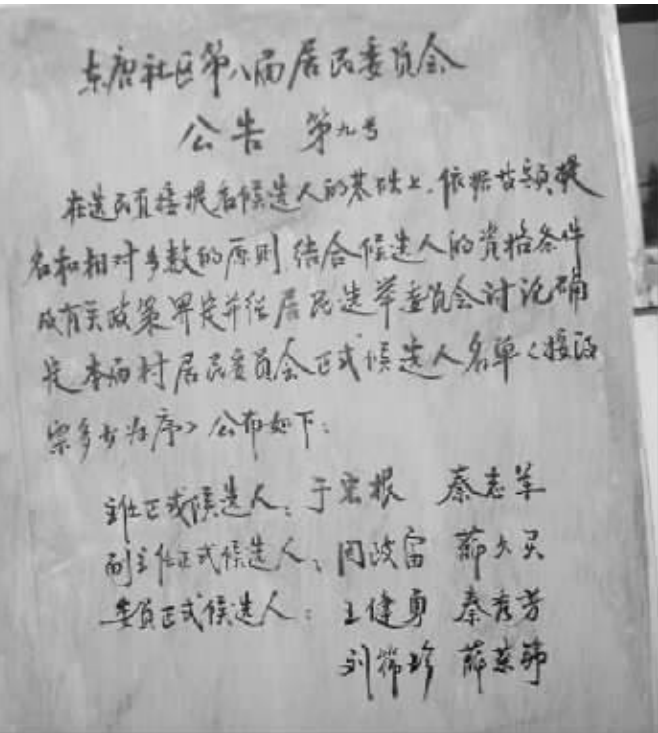 东唐社区第八届居民委员会
公告 第九号
在选民直接提名候选人的基础上,依据其实提
名和相对多数的原则结合候选人的资格条件
及有关政策界定并经居民选举委员会讨论确
定本届村居民委员会正式候选人名单<按得
票多少为序>公布如下:
主任正式候选人:于宏根 秦志军
副主任正式候选人:周政富 薛大
委员正式候选人:王健勇 秦秀芳
刘 珍 薛